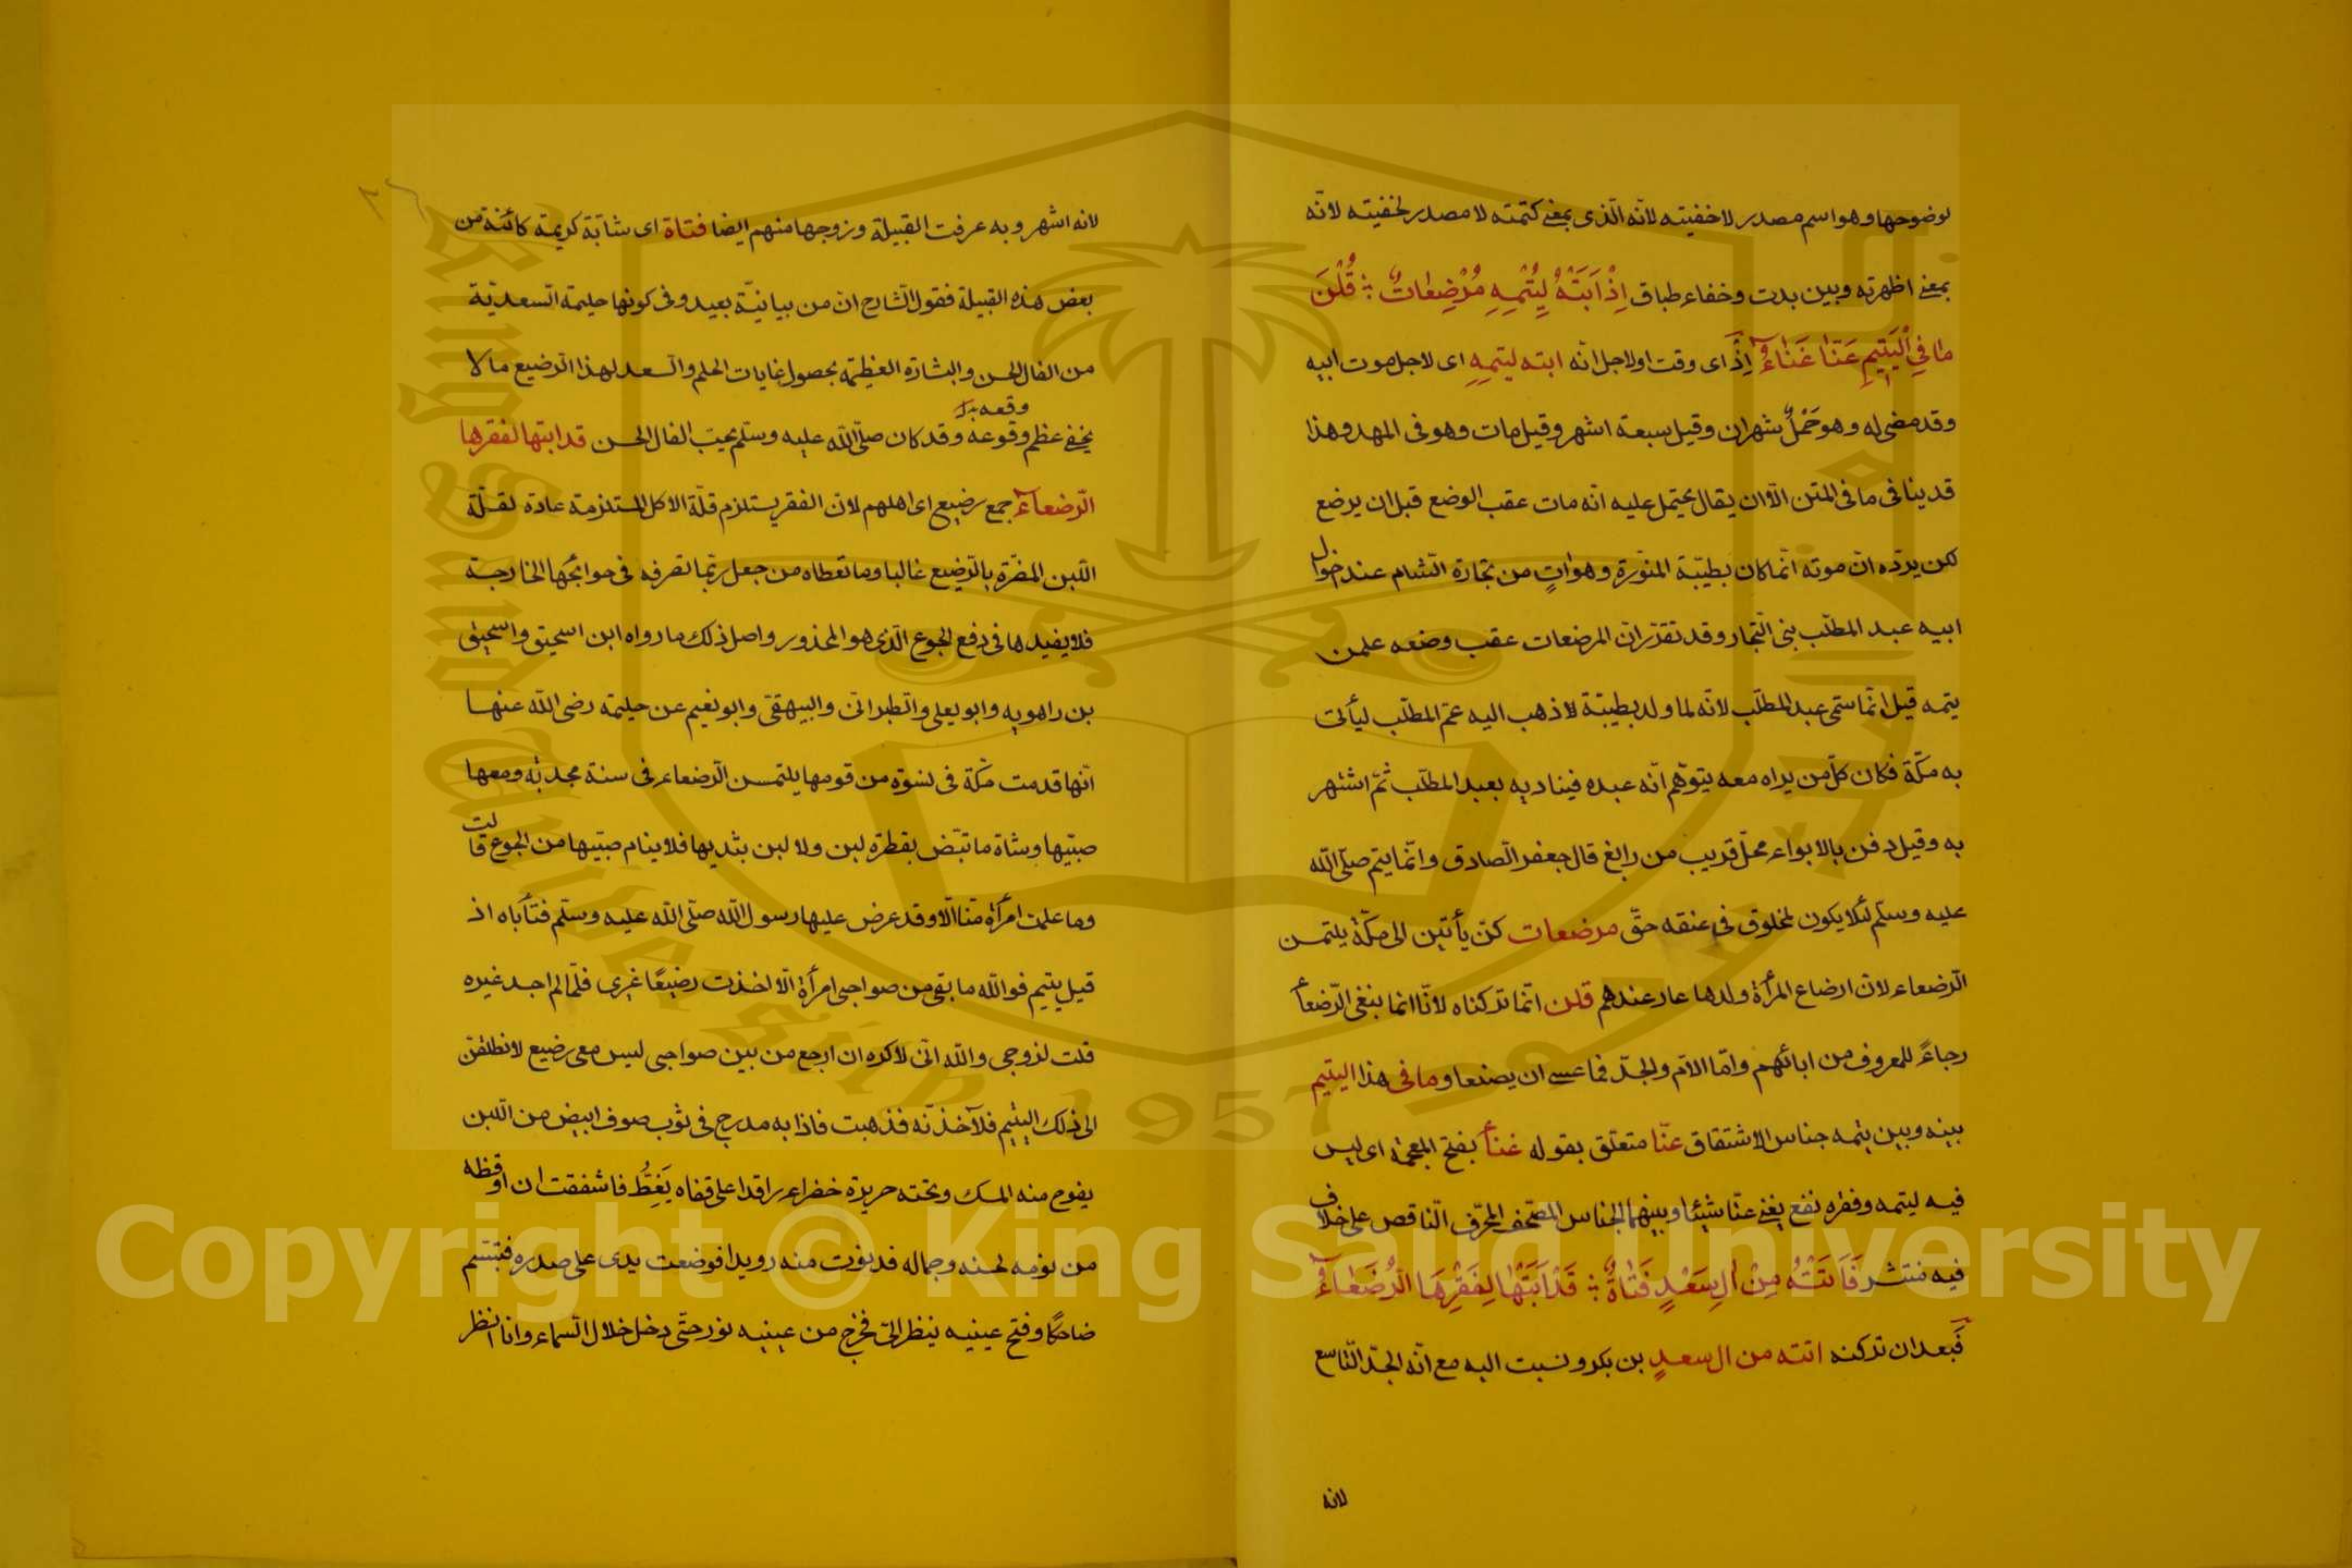 لوضوحها وهو اسم مصدر لاخفيته لانّه الّذى بمعنى كتمته لا مصدر لخفيته لانّه
بمعنى اظهرته وبين بدت وخفاء طباق اِذْ اَبَتْهُ لِيُتْمِهِ مُرْضِعَاتٌ ؞ قُلْنَ
مَا فِي الْيَتِيمِ عَنَّا غَنَاءُ اِذْ اى وقت اولاجل انّه ابته ليتمِهِ اى لاجل موت ابيه
وقد مضى له وهو حَمْلٌ شهران وقيل سبعة اشهر وقيل مات وهو فى المهد وهذا
قد ينافى ما فى المتن الّا ان يقال يحتمل عليه انّه مات عقب الوضع قبل ان يرضع
لكن يردّه انّ موته انّما كان بطيّبة المنوّرة وهو اتٍ من تجارة الشام عند اخوال
ابيه عبد المطّلب بنى النجار وقد تقرّر انّ المرضعات عقب وضعه علمن
يتمه قيل انّما سمّى عبد المطّلب لانّه لما ولد بطيبة لاذهب اليه عمّ المطّلب ليأتى
به مكّة فكان كلّ من يراه معه يتوّهم انّه عبده فيناديه بعبد المطّلب ثمّ اشتهر
به وقيل دفن بالابواء محلّ قريب من رابغ قال جعفر الصادق وانّما يتم صلّى اللّه
عليه وسلّم لئلا يكون لمخلوق فى عنقه حقّ مرضعات كنّ يأتين الى مكّة يلتمسن
الرّضعاء لانّ ارضاع المرأة ولدها عار عندهم قلن انّما تركناه لانّا انما نبغى الرّضعأ
رجاءً للمعروف من ابائهم وامّا الامّ والجدّ فما عسى ان يصنعا وما فى هذا اليتيم
بينه وبين يتمه جناس الاشتقاق عنّا متعلّق بقوله غنأ بفتح المعجمة اى ليس
فيه ليتمه وفقره نفع يغنى عنّا شيئا وبينهما الجناس المصّحف المحرّف النّاقص على خلاف
فيه منتشر فَاَتَتْهُ مِنْ اٰلِ سَعْدٍ فَتَاةٌ ؞ قَدْ اَبَتْهَا لِفَقْرِهَا الرُّضَعَاءُ
فَبعد ان تركنه اتته من ال سعدٍ بن بكر ونسبت اليه مع انّه الجدّ التّاسع
لانه
لانه اشهر وبه عرفت القبيلة وزوجها منهم ايضا فتاة اى شابّة كريمة كائنة من
بعض هذه القبيلة فقول الشارح انّ من بيانيّة بعيد وفى كونها حليمة السعديّة
من الفال الحسن والبشارة العظيمة بحصول غايات الحلم والسعد لهذا الرضيع ما لا
يخفى عظم وقوعه وقد كان صلّى اللّه عليه وسلّم يحبّ الفال الحسن قد ابتها لفقرها
الرّضعاءُ جمع رضيع اى اهلهم لانّ الفقر يستلزم قلّة الاكل المستلزمة عادة لقلّة
اللّبن المضرّة بالرّضيع غالبا وما تعطاه من جعل ربّما تصرفه فى حوائجها الخارجة
فلا يفيدها فى دفع الجوع الّذى هو المحذور واصل ذلك ما رواه ابن اسحق واسحق
بن راهويه وابو يعلى والطبرانى والبيهقى وابو نعيم عن حليمة رضى اللّه عنها
انّها قدمت مكّة فى نسوة من قومها يلتمسن الرّضعاء فى سنة مجدبة ومعها
صبيّها وشاة ما تبّض بقطرة لبن ولا لبن بثديها فلا ينام صبيّها من الجوع قالت
وما علمت امرأة منّا الّا وقد عرض عليها رسول اللّه صلّى اللّه عليه وسلّم فتأباه اذ
قيل يتيم فو اللّه ما بقى من صواحبى امرأة الّا اخذت رضيعًا غيرى فلمّا لم اجد غيره
قلت لزوجى واللّه انّى لاكره ان ارجع من بين صواحبى ليس معى رضيع لانطلقنّ
الى ذلك اليتيم فلآخذنّه فذهبت فاذا به مدرج فى ثوب صوف ابيض من اللّبن
يفوح منه المسك وتحته حريرة خضراء راقدا على قفاه يَغِطُّ فاشفقت ان اوقظه
من نومه لحسنه وجماله فدنوت منه رويدا فوضعت يدى على صدره فتبسّم
ضاحكا وفتح عينيه ينظر الىّ فخرج من عينيه نور حتّى دخل خلال السماء وانا انظر
King Saud University
1957
Copyright © King Saud University